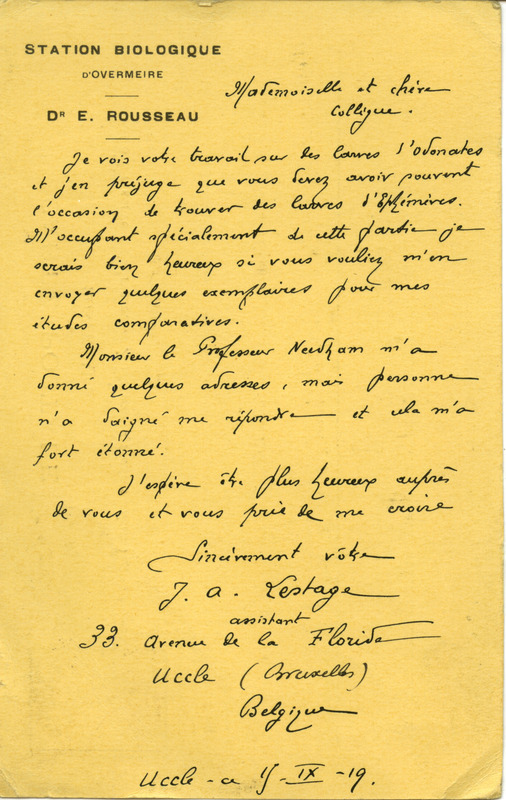 STATION BIOLOGIQUE
D'OVERMEIRE
DR E. ROUSSEAU
Mademoiselle et chère
Collègue.
Je vois votre travail sur des larves d'Odonates
et j'en préjuge que vous devez avoir souvent
l'occasion de trouver des larves d'Ephémères.
M'occupant spécialement de cette partie je
serais bien heureux si vous vouliez m'en
envoyer quelques exemplaires pour mes
études comparatives.
Monsieur le Professeur Needham m'a
donné quelques adresses, mais personne
n'a daigné me répondre et cela m'a
fort étonné.
J'espère être plus heureux auprès
de vous et vous prie de me croire
Sincèrement vôtre
J. A. Lestage
assistant
33. Avenue de la Floride
Uccle (Bruxelles)
Belgique
Uccle - IX - 19.